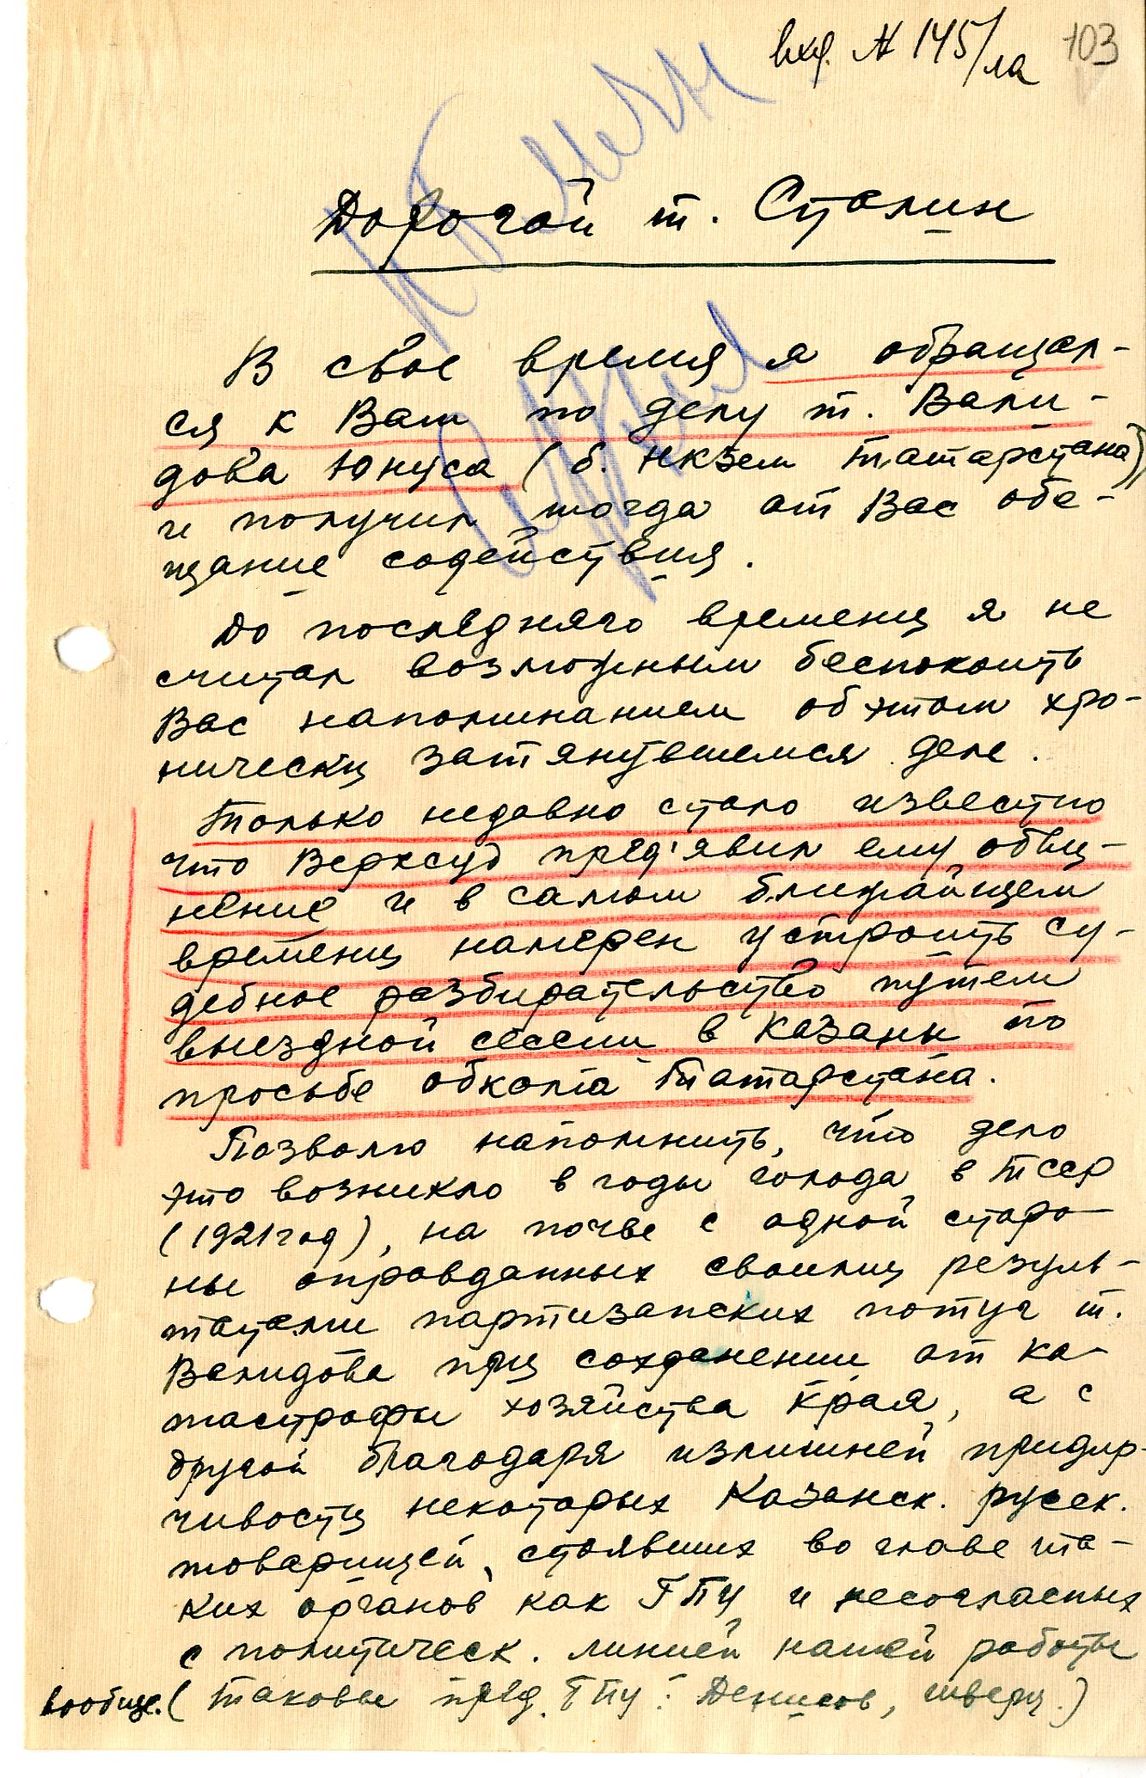 вхд. № 145/ла 103
Дорогой т. Сталин
В свое время я обращал-
ся к Вам по делу т. Вали-
дова Юнуса (б. Нкзем Татарстана)
и получил тогда от Вас обе-
щание содействия.
До последняго времени я не
считал возможным беспокоить
Вас напоминанием об этом хро-
нически затянувшемся деле.
Только недавно стало известно
что Верхсуд пред'явил ему обви-
нение и в самом ближайшем
времени намерен устроить су-
дебное разбирательство путем
выездной сессии в Казани по
просьбе обкома Татарстана.
Позволю напомнить, что дело
это возникло в годы голода в ТССР
(1921 год), на почве с одной сторо-
ны оправданных своими резуль-
татами партизанских потуг т.
Валидова при сохранении от ка-
тастрофы хозяйства края, а с
другой благодаря излишней придир-
чивости некоторых Казанск. русск.
товарищей, стоявших во главе та-
ких органов как ГПУ и несогласных
с политическ. линией нашей работы
вообще. (Таковы пред. ГПУ: Денисов, Шверц.)